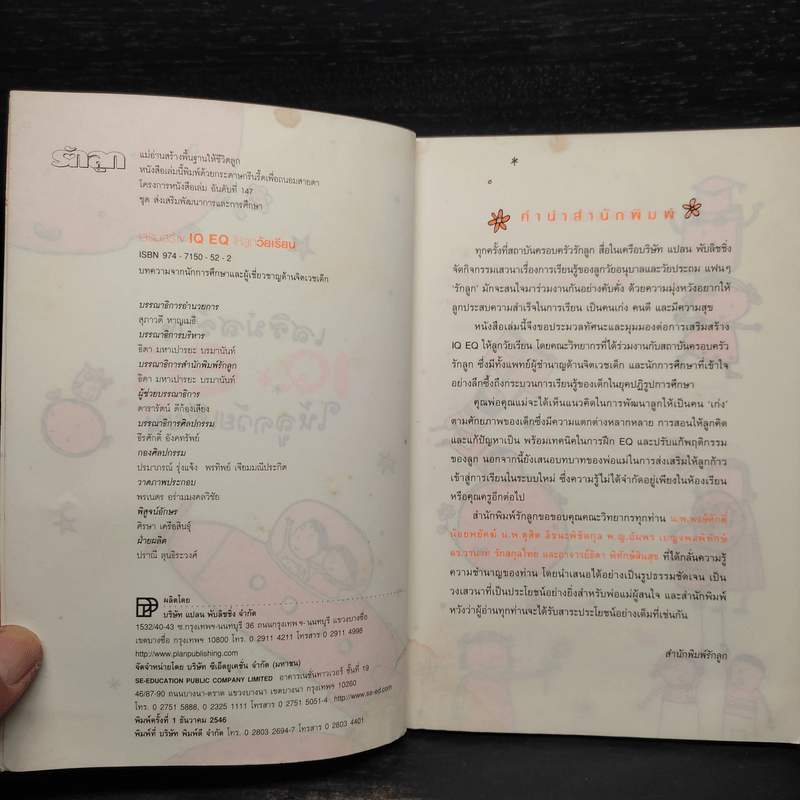 รักลูก
แม่อ่านสร้างพื้นฐานให้ชีวิตลูก
หนังสือเล่มนี้พิมพ์ด้วยกระดาษกรีนรี้ดเพื่อถนอมสายตา
โครงการหนังสือเล่ม อันดับที่ 147
ชุด ส่งเสริมพัฒนาการและการศึกษา
เสริมสร้าง IQ EQ ให้ลูกวัยเรียน
ISBN 974 - 7150 - 52 - 2
บทความจากนักการศึกษาและผู้เชี่ยวชาญด้านจิตเวชเด็ก
บรรณาธิการอำนวยการ
สุภาวดี หาญเมธี
บรรณาธิการบริหาร
ธิดา มหาเปารยะ บรมานันท์
บรรณาธิการสำนักพิมพ์รักลูก
ธิดา มหาเปารยะ บรมานันท์
ผู้ช่วยบรรณาธิการ
ดารารัตน์ ดีก้องเสียง
บรรณาธิการศิลปกรรม
ธีรศักดิ์ อังคทรัพย์
กองศิลปกรรม
ปรมาภรณ์ รุ่งแจ้ง พรทิพย์ เจียมมณีประกิต
วาดภาพประกอบ
พรเนตร อร่ามมงคลวิชัย
พิสูจน์อักษร
ศิรษา เครือสินธุ์
ฝ่ายผลิต
ปราณี ลุนธิระวงศ์
ผลิตโดย
บริษัท แปลน พับลิชชิ่ง จำกัด
1532/40-43 ซ.กรุงเทพฯ-นนทบุรี 36 ถนนกรุงเทพฯ-นนทบุรี แขวงบางซื่อ
เขตบางซื่อ กรุงเทพฯ 10800 โทร. 0 2911 4211 โทรสาร 0 2911 4998
http://www.planpublishing.com
จัดจำหน่ายโดย บริษัท ซีเอ็ดยูเคชั่น จำกัด (มหาชน)
SE-EDUCATION PUBLIC COMPANY LIMITED อาคารเนชั่นทาวเวอร์ ชั้นที่ 19
46/87-90 ถนนบางนา-ตราด แขวงบางนา เขตบางนา กรุงเทพฯ 10260
โทร. 0 2751 5888, 0 2325 1111 โทรสาร 0 2751 5051-4 http://www.se-ed.com
พิมพ์ครั้งที่ 1 ธันวาคม 2546
พิมพ์ที่ บริษัท พิมพ์ดี จำกัด โทร. 0 2803 2694-7 โทรสาร 0 2803 4401
คำนำสำนักพิมพ์
ทุกครั้งที่สถาบันครอบครัวรักลูก สื่อในเครือบริษัท แปลน พับลิชชิ่ง
จัดกิจกรรมเสวนาเรื่องการเรียนรู้ของลูกวัยอนุบาลและวัยประถม แฟนๆ
'รักลูก' มักจะสนใจมาร่วมงานกันอย่างคับคั่ง ด้วยความมุ่งหวังอยากให้
ลูกประสบความสำเร็จในการเรียน เป็นคนเก่ง คนดี และมีความสุข
หนังสือเล่มนี้จึงขอประมวลทัศนะและมุมมองต่อการเสริมสร้าง
IQ EQ ให้ลูกวัยเรียน โดยคณะวิทยากรที่ได้ร่วมงานกับสถาบันครอบครัว
รักลูก ซึ่งมีทั้งแพทย์ผู้ชำนาญด้านจิตเวชเด็ก และนักการศึกษาที่เข้าใจ
อย่างลึกซึ้งถึงกระบวนการเรียนรู้ของเด็กในยุคปฏิรูปการศึกษา
คุณพ่อคุณแม่จะได้เห็นแนวคิดในการพัฒนาลูกให้เป็นคน 'เก่ง'
ตามศักยภาพของเด็กซึ่งมีความแตกต่างหลากหลาย การสอนให้ลูกคิด
และแก้ปัญหาเป็น พร้อมเทคนิคในการฝึก EQ และปรับแก้พฤติกรรม
ของลูก นอกจากนี้ยังเสนอบทบาทของพ่อแม่ในการส่งเสริมให้ลูกก้าว
เข้าสู่การเรียนในระบบใหม่ ซึ่งความรู้ไม่ได้จำกัดอยู่เพียงในห้องเรียน
หรือคุณครูอีกต่อไป
สำนักพิมพ์รักลูกขอขอบคุณคณะวิทยากรทุกท่าน น.พ.พงษ์ศักดิ์
น้อยพยัคฆ์ น.พ.ดุสิต ลิขนะพิชิตกุล พ.ญ.อัมพร เบญจพลพิทักษ์
ดร.วรนาท รักสกุลไทย และอาจารย์ธิดา พิทักษ์สินสุข ที่ได้กลั่นความรู้
ความชำนาญของท่าน โดยนำเสนอได้อย่างเป็นรูปธรรมชัดเจน เป็น
วงเสวนาที่เป็นประโยชน์อย่างยิ่งสำหรับพ่อแม่ผู้สนใจ และสำนักพิมพ์
หวังว่าผู้อ่านทุกท่านจะได้รับสาระประโยชน์อย่างเต็มที่เช่นกัน
สำนักพิมพ์รักลูก